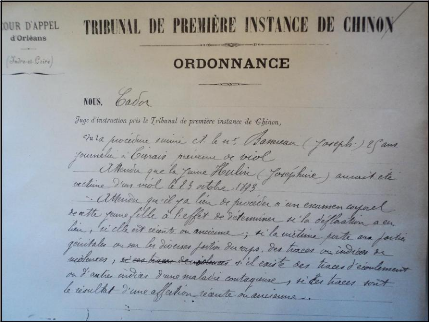 COUR D'APPEL
d'Orléans
(Indre-et-Loire)
TRIBUNAL DE PREMIÈRE INSTANCE DE CHINON
ORDONNANCE
NOUS, Cador
Juge d'instruction près le Tribunal de première instance de Chinon,
Vu la procédure suivie et le né (Joseph) 25 ans
journalier à prévenu de viol
Attendu que la jeune Hulin (Joséphine) aurait été
victime d'un viol le 23 octobre
Attendu qu'il y a lieu de procéder à un examen corporel
de cette jeune fille à l'effet de déterminer si la défloration a eu
lieu, si elle est récente ou ancienne ; si la victime porte aux parties
génitales ou sur les diverses parties du corps, des traces ou indices de
violences, s'il existe des traces d'écoulement
ou d'autres indices d'une maladie contagieuse, si ces traces sont
le résultat d'une affection récente ou ancienne